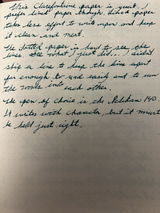 This Clairefontaine paper is great. I
prefer lined paper though. Lined paper
takes less effort to write upon and keep
it clean and neat.
The dotted paper is hard to see the
lines like what I just did... I didn't
skip a line to keep the lines apart
far enough to read easily and to run
the words into each other.
The pen of choice is the Pelikan 140.
It writes with character but it must
be held just right.